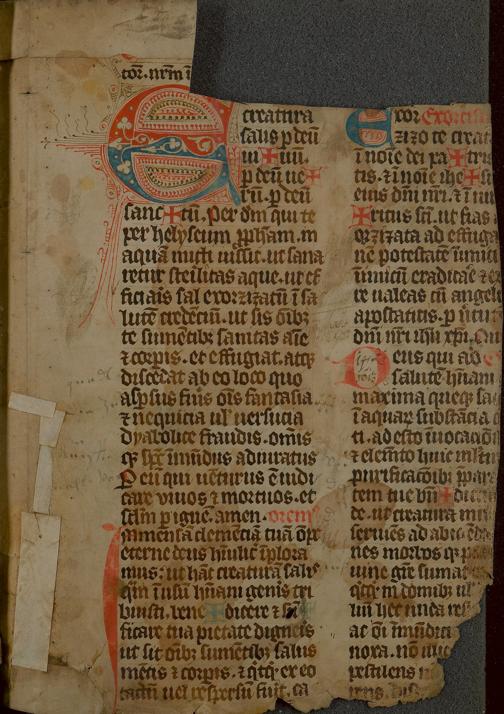 tor. nrm i
E creatura
salis p deū
uī ✠ uū.
p deū ue✠
rū. p deū
sanc✠tū. Per dm qui te
per helyseum ꝓpham. in
aquā mitti iussit. ut sana
retur steilitas aque. ut ef
ficiaīs sal exorzizatū ī sa
lutē credētiū. ut sis oīb
te sumētib sanitas aīe
⁊ corpis. et effugiat. atq
discedat ab eo loco quo
aspsus fuis oīs fantasia
⁊ nequicia ul uersucia
dyabolice fraudis. omīs
q sps īmūdus adiuratus
Per eū qui uēturus ē iudi
care viuos ⁊ mortuos. et
sclm p ignē. amen. orem
Immensā clemēciā tuā oīps
eterne deus hūilit īplora
mus: ut hāc creaturā salis
qm ī usū hūani genis tri
buisti. bene✠dicere ⁊ sci
ficare tua pietate digneis
ut sit oīb sumētib salus
mētis ⁊ corpis. ⁊ qcq ex eo
tactū uel respersū fuit. ca
Exor Exorcis
zizo te creat
ī noīe dei pa✠tris
tis. ⁊ ī noīe ihe✠
eius dni nri. ⁊ ī
✠ritus sci. ut fias
orzizata ad effuga
nē potestatē īimici
īimicū eradicā ⁊ ex
te ualeas cū angel
apostaticis. p ūtut
dni nri ihu xpi.
Deus qui ad
salutē hūani
maxima queq sa
ī aquar substācia
ti. ad esto īuocacōi
⁊ elemēto huic
purificacōib ppar
tem tue bn✠dicc
de. ut creatura
seruies ad abic
nes morbos q p
uine gre sumat
qcq in domib ul
liū hec unda res
at oī īmūdici
noxa. nō
pestilens